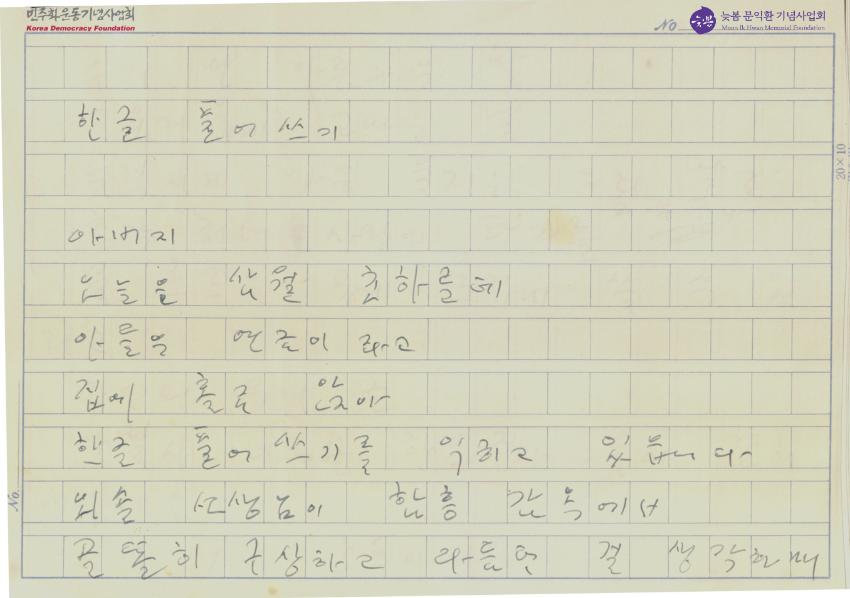 민주화운동기념사업회
Korea Democracy Foundation
No.
늦봄 문익환 기념사업회
Moon Ik Hwan Memorial Foundation
한글 풀어 쓰기
20×10
아버지
오늘은 삼월 초하룬데
아들은 연금이 라고
집에 홀로 앉아
한글 풀어 쓰기를 익히고 있읍니다
외솔 선생님이 함흥 감옥에서
골똘히 구상하고 다듬던 걸 생각하며
No.